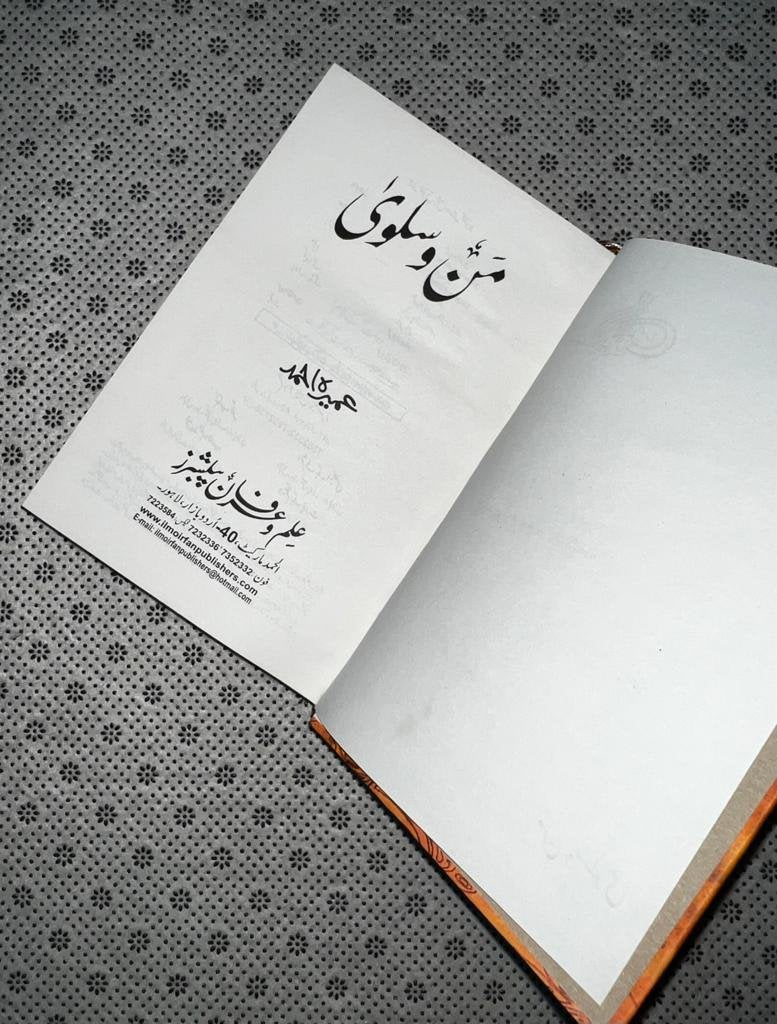 مَن و سلویٰ
عمیرہ احمد
علم و عرفان پبلشرز
الحمد مارکیٹ، 40۔اُردو بازار، لاہور۔
فون: 7352332-7232336 فیکس: 7223584
www.ilmoirfanpublishers.com
E-mail: ilmoirfanpublishers@hotmail.com